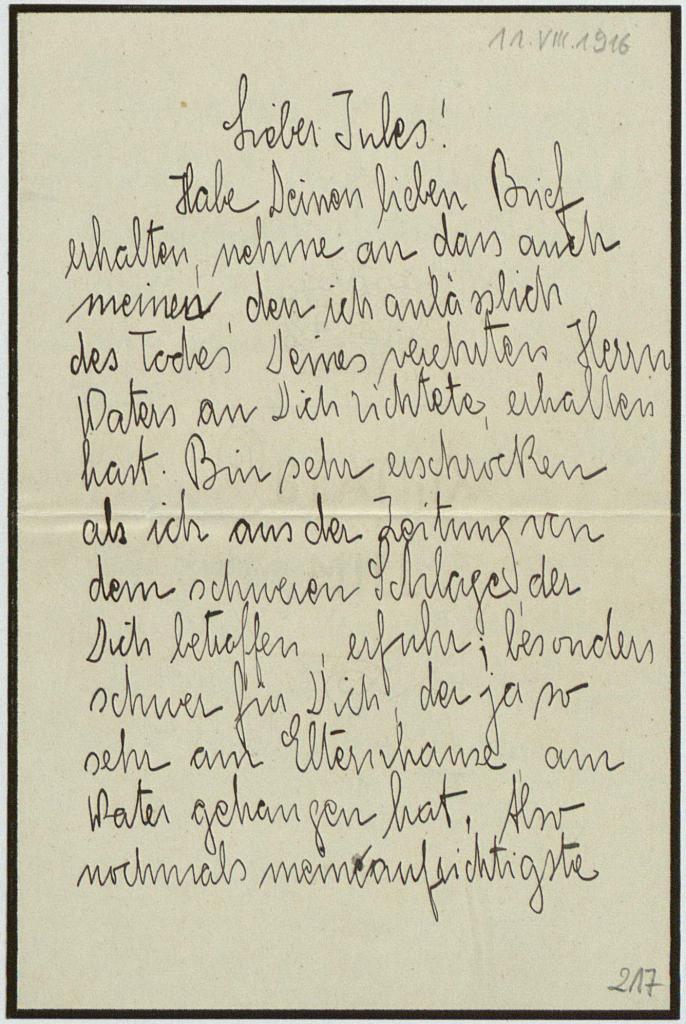 11.VIII.1916
Lieber Jules!
Habe Deinen lieben Brief
erhalten, nehme an, dass auch
meinen, den ich anlässlich
des Todes Deines verehrten Herrn
Vaters an Dich richtete, erhalten
hast. Bin sehr erschrocken
als ich aus der Zeitung von
dem schweren Schlage, der
Dich betroffen, erfuhr; besonders
schwer für Dich, der ja so
sehr am Elternhause, am
Vater gehangen hat. Also
nochmals meine aufrichtigste
217